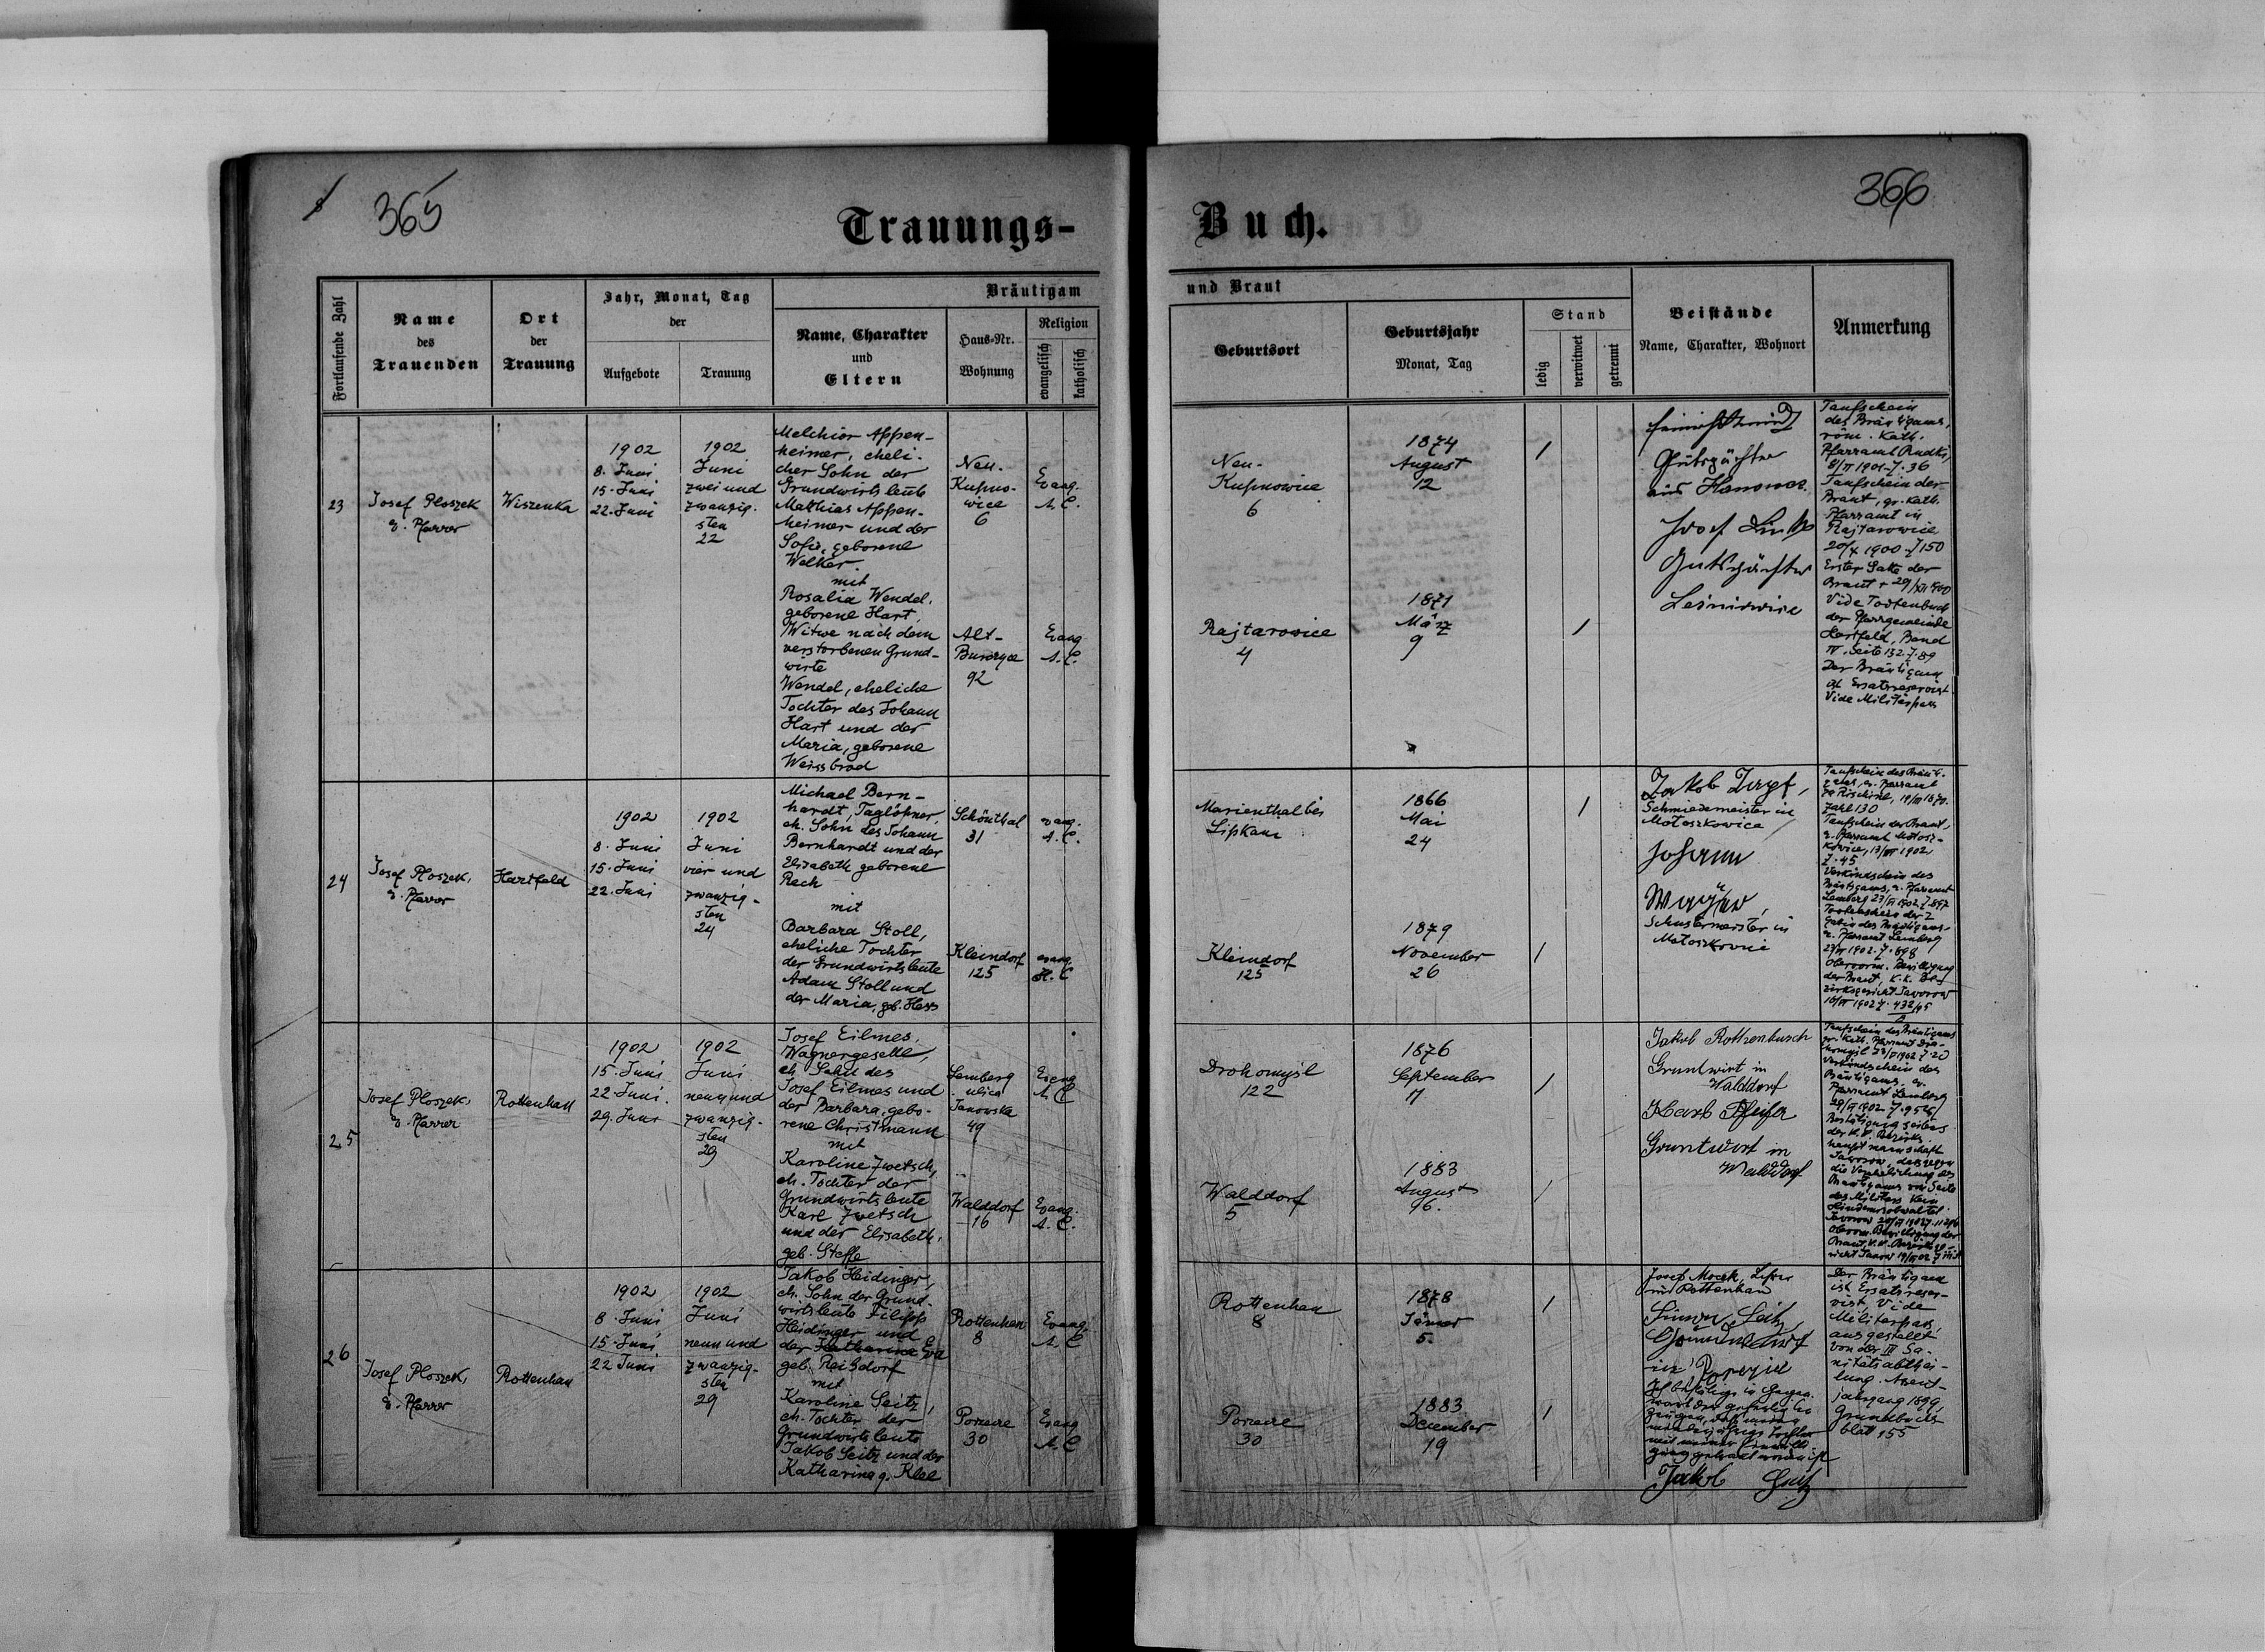 365
366
Trauungs-
Buch.
Fortlaufende Zahl
Name
des
Trauenden
Ort
der
Trauung
Jahr, Monat, Tag
der
Aufgebote
Trauung
Bräutigam
Name, Charakter
und
Eltern
Haus-Nr.
Wohnung
Religion
evangelisch
katholisch
und Braut
Geburtsort
Geburtsjahr
Monat, Tag
Stand
ledig
verwitwet
getrennt
Beistände
Name, Charakter, Wohnort
Anmerkung
23
Josef Ploszek
e. Pfarrer
Wiszenka
1902
8. Juni
15. Juni
22. Juni
1902
Juni
zwei und
zwanzig-
sten
22
Melchior Appen-
heimer, eheli-
cher Sohn der
Grundwirtsleute
Matthias Appen-
heimer und der
Sofie, geborene
Welker
mit
Rosalia Wendel,
geborene Hart,
Witwe nach dem
verstorbenen Grund-
wirte
Wendel, eheliche
Tochter des Johann
Hart und der
Maria, geborene
Weissbrod
Neu-
Kupno-
wice
6
Evang.
A. C.
Alt-
Burczyce
92
Evang
A. C.
Neu-
Kupnowice
6
1874
August
12
Rajtarowice
4
1871
März
9
Gutspächter
aus
Josef
Gutspächter
Taufschein
des Bräutigams,
röm. Kath.
Pfarramt Rudki,
8/II 1901 Z. 36
Taufschein der
Braut, gr. Kath.
Pfarramt in
Rajtarowice
20/X 1900 Z 150
Erster Gatte der
Braut + 29/XII 1900
Vide Todtenbuch
der Pfarrgemeinde
Hartfeld, Band
IV. Seite 132 Z. 89
Der Bräutigam
ist Ersatzreservist
Vide Militärpass
24
Josef Ploszek,
e. Pfarrer
Hartfeld
1902
8. Juni
15. Juni
22. Juni
1902
Juni
vier und
zwanzig-
sten
24
Michael Bern-
hardt, Taglöhner,
eh. Sohn des Johann
Bernhardt und der
Elisabeth geborene
Rech
mit
Barbara Stoll,
eheliche Tochter
der Grundwirtsleute
Adam Stoll und
der Maria, geb. Hess
Schönthal
31
evang.
A. C.
Kleindorf
125
evang.
H. C
Marienthal bei
1866
Mai
24
Kleindorf
125
1879
November
26
Jakob Zapf,
Schmiedemeister in
Mołoszkowice
Johann
Wagner,
Schustermeister in
Taufschein der Braut,
13/VI 1902
Z. 45
Verkündschein des
Bräutigams, e. Pfarramt
Lemberg 23/VI 1902 Z. 897
e. Pfarramt Lemberg
23/VI 1902 Z. 898
Oberrorm. Bewilligung
der Braut, K. K. Be-
zirksgericht Jaworow
25
Josef Ploszek,
e. Pfarrer
Rottenhan
1902
15. Juni
22. Juni.
29. Juni
1902
Juni
neun und
zwanzig-
sten
29
Josef Eilmes,
Wagnergeselle,
eh. Sohn des
Josef Eilmes und
der Barbara, gebo-
rene Christmann
mit
Karoline Zwetsch,
eh. Tochter der
Grundwirtsleute
Karl Zwetsch
und der Elisabeth,
geb. Steffe
Lemberg
ulica
Janowska
49
Evang
A. C
Walddorf
16
Evang.
A. C.
Drohomysl
122
1876
September
17
Walddorf
5
1883
August
Jakob Rothenbusch
Gruntwirt in
Walddorf
Karl Pfeifer
Gruntwirt in
Walddorf
Taufschein des Bräutigams
Verkündschein des
Bräutigams, ev.
Pfarramt Lemberg
26
Josef Ploszek,
e. Pfarrer
Rottenhan
1902
8. Juni
15. Juni
22 Juni
1902
Juni
neun und
zwanzig-
sten
29
Jakob Heidinger,
eh. Sohn der Grund-
wirtsleute Filipp
Heidinger und
der Katharina Eva
geb. Reichdorf
mit
Karoline Seitz,
eh. Tochter der
Grundwirtsleute
Jakob Seitz und der
Katharina g. Klee
Rottenhan
8
Evang.
A. C
Porzecze
30
Evang
A. C
Rottenhan
8
1878
Jänner
5.
Porzecze
30
1883
December
19
Josef Mock, Lehrer
in Rottenhan
Simon Seitz,
Grundwirt
in
Jakob Seitz
Der Bräutigam
ist Ersatzreser-
vist, Vide
Militärpass,
ausgestellt
von der III Sa-
nitätsabthei-
lung. Assent-
jahrgang 1899,
Grundbuchs-
blatt 155